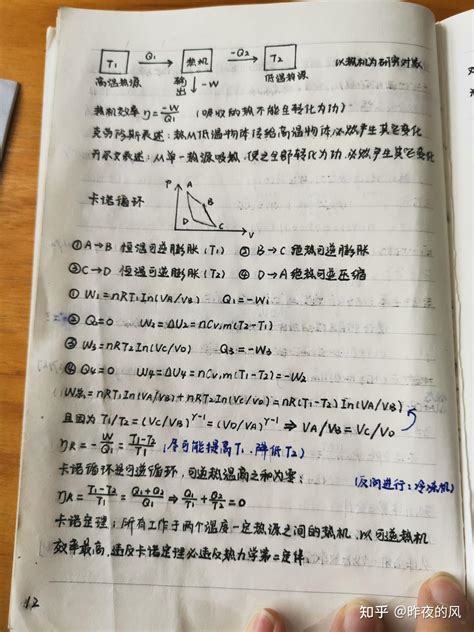 T₁ Q₁ 热机 -Q₂ T₂ 以热机为研究对象
高温热源 输出 -W 低温热源
热机效率 η=-W/Q₁ (吸收的热不能全转化为功)
克劳修斯表述:热从低温物体传给高温物体必然产生其它变化
开尔文表述:从单一热源吸热,使之全部转化为功,必然产生其它变化
卡诺循环 P A B D C V
①A→B 恒温可逆膨胀(T₁) ② B→C 绝热可逆膨胀
③C→D 恒温可逆膨胀(T₂) ④ D→A 绝热可逆压缩
① W₁=nRT₁ln(VA/VB) Q₁=-W₁
② Q₂=0 W₂=ΔU₂=nCv,m(T₂-T₁)
③ W₃=nRT₂ln(Vc/VD) Q₃=-W₃
④ Q₄=0 W₄=ΔU₄=nCv,m(T₁-T₂)=-W₂
W总=nRT₁ln(VA/VB)+nRT₂ln(Vc/VD)=nR(T₁-T₂)ln(VA/VB)
且因为 T₁/T₂=(Vc/VB)^γ-1=(VD/VA)^γ-1 ⇒ VA/VB=Vc/VD
ηR=-W/Q₁=T₁-T₂/T₁ (尽可能提高T₁、降低T₂)
卡诺循环是可逆循环,可逆热温商之和为零: (反向进行:冷冻机)
ηR=T₁-T₂/T₁=Q₁+Q₂/Q₁ ⇒ Q₁/T₁+Q₂/T₂=0
卡诺定理:所有工作于两个温度一定热源之间的热机,以可逆热机
效率最高,违反卡诺定理必违反热力学第二定律.
12
知乎 @昨夜的风